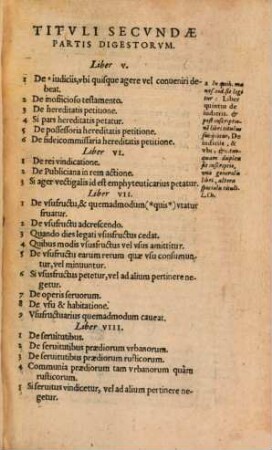 TITVLI SECVNDÆ
PARTIS DIGESTORVM.
Liber v.
1 De * iudiciis, vbi quisque agere vel conueniri de-
beat.
2 De inofficioso testamento.
3 De hereditatis petitione.
4 Si pars hereditatis petatur.
5 De possessoria hereditatis petitione.
6 De fideicommissaria hereditatis petitione.
Liber VI.
1 De rei vindicatione.
2 De Publiciana in rem actione.
3 Si ager vectigalis id est emphyteuticarius petatur.
Liber VII.
1 De vsufructu, & quemadmodum (*quis*) vtatur
fruatur.
2 De vsufructu adcrescendo.
3 Quando dies legati vsusfructus cedat.
4 Quibus modis vsusfructus vel vsus amittitur.
5 De vsufructu earum rerum quæ vsu consumun-
tur, vel minuuntur.
6 Si vsusfructus petetur, vel ad alium pertinere ne-
getur.
7 De operis seruorum.
8 De vsu & habitatione.
9 Vsufructuarius quemadmodum caueat.
Liber VIII.
1 De seruitutibus.
2 De seruitutibus prædiorum vrbanorum.
3 De seruitutibus prædiorum rusticorum.
4 Communia prædiorum tam vrbanorum quàm
rusticorum.
5 Si seruitus vindicetur, vel ad alium pertinere ne-
getur.
tur: Liber
quintus de
iudiciis. &
post inscriptio-
iudiciis, &
vbi, &c.
generalis
libri, altera
specialis tituli.